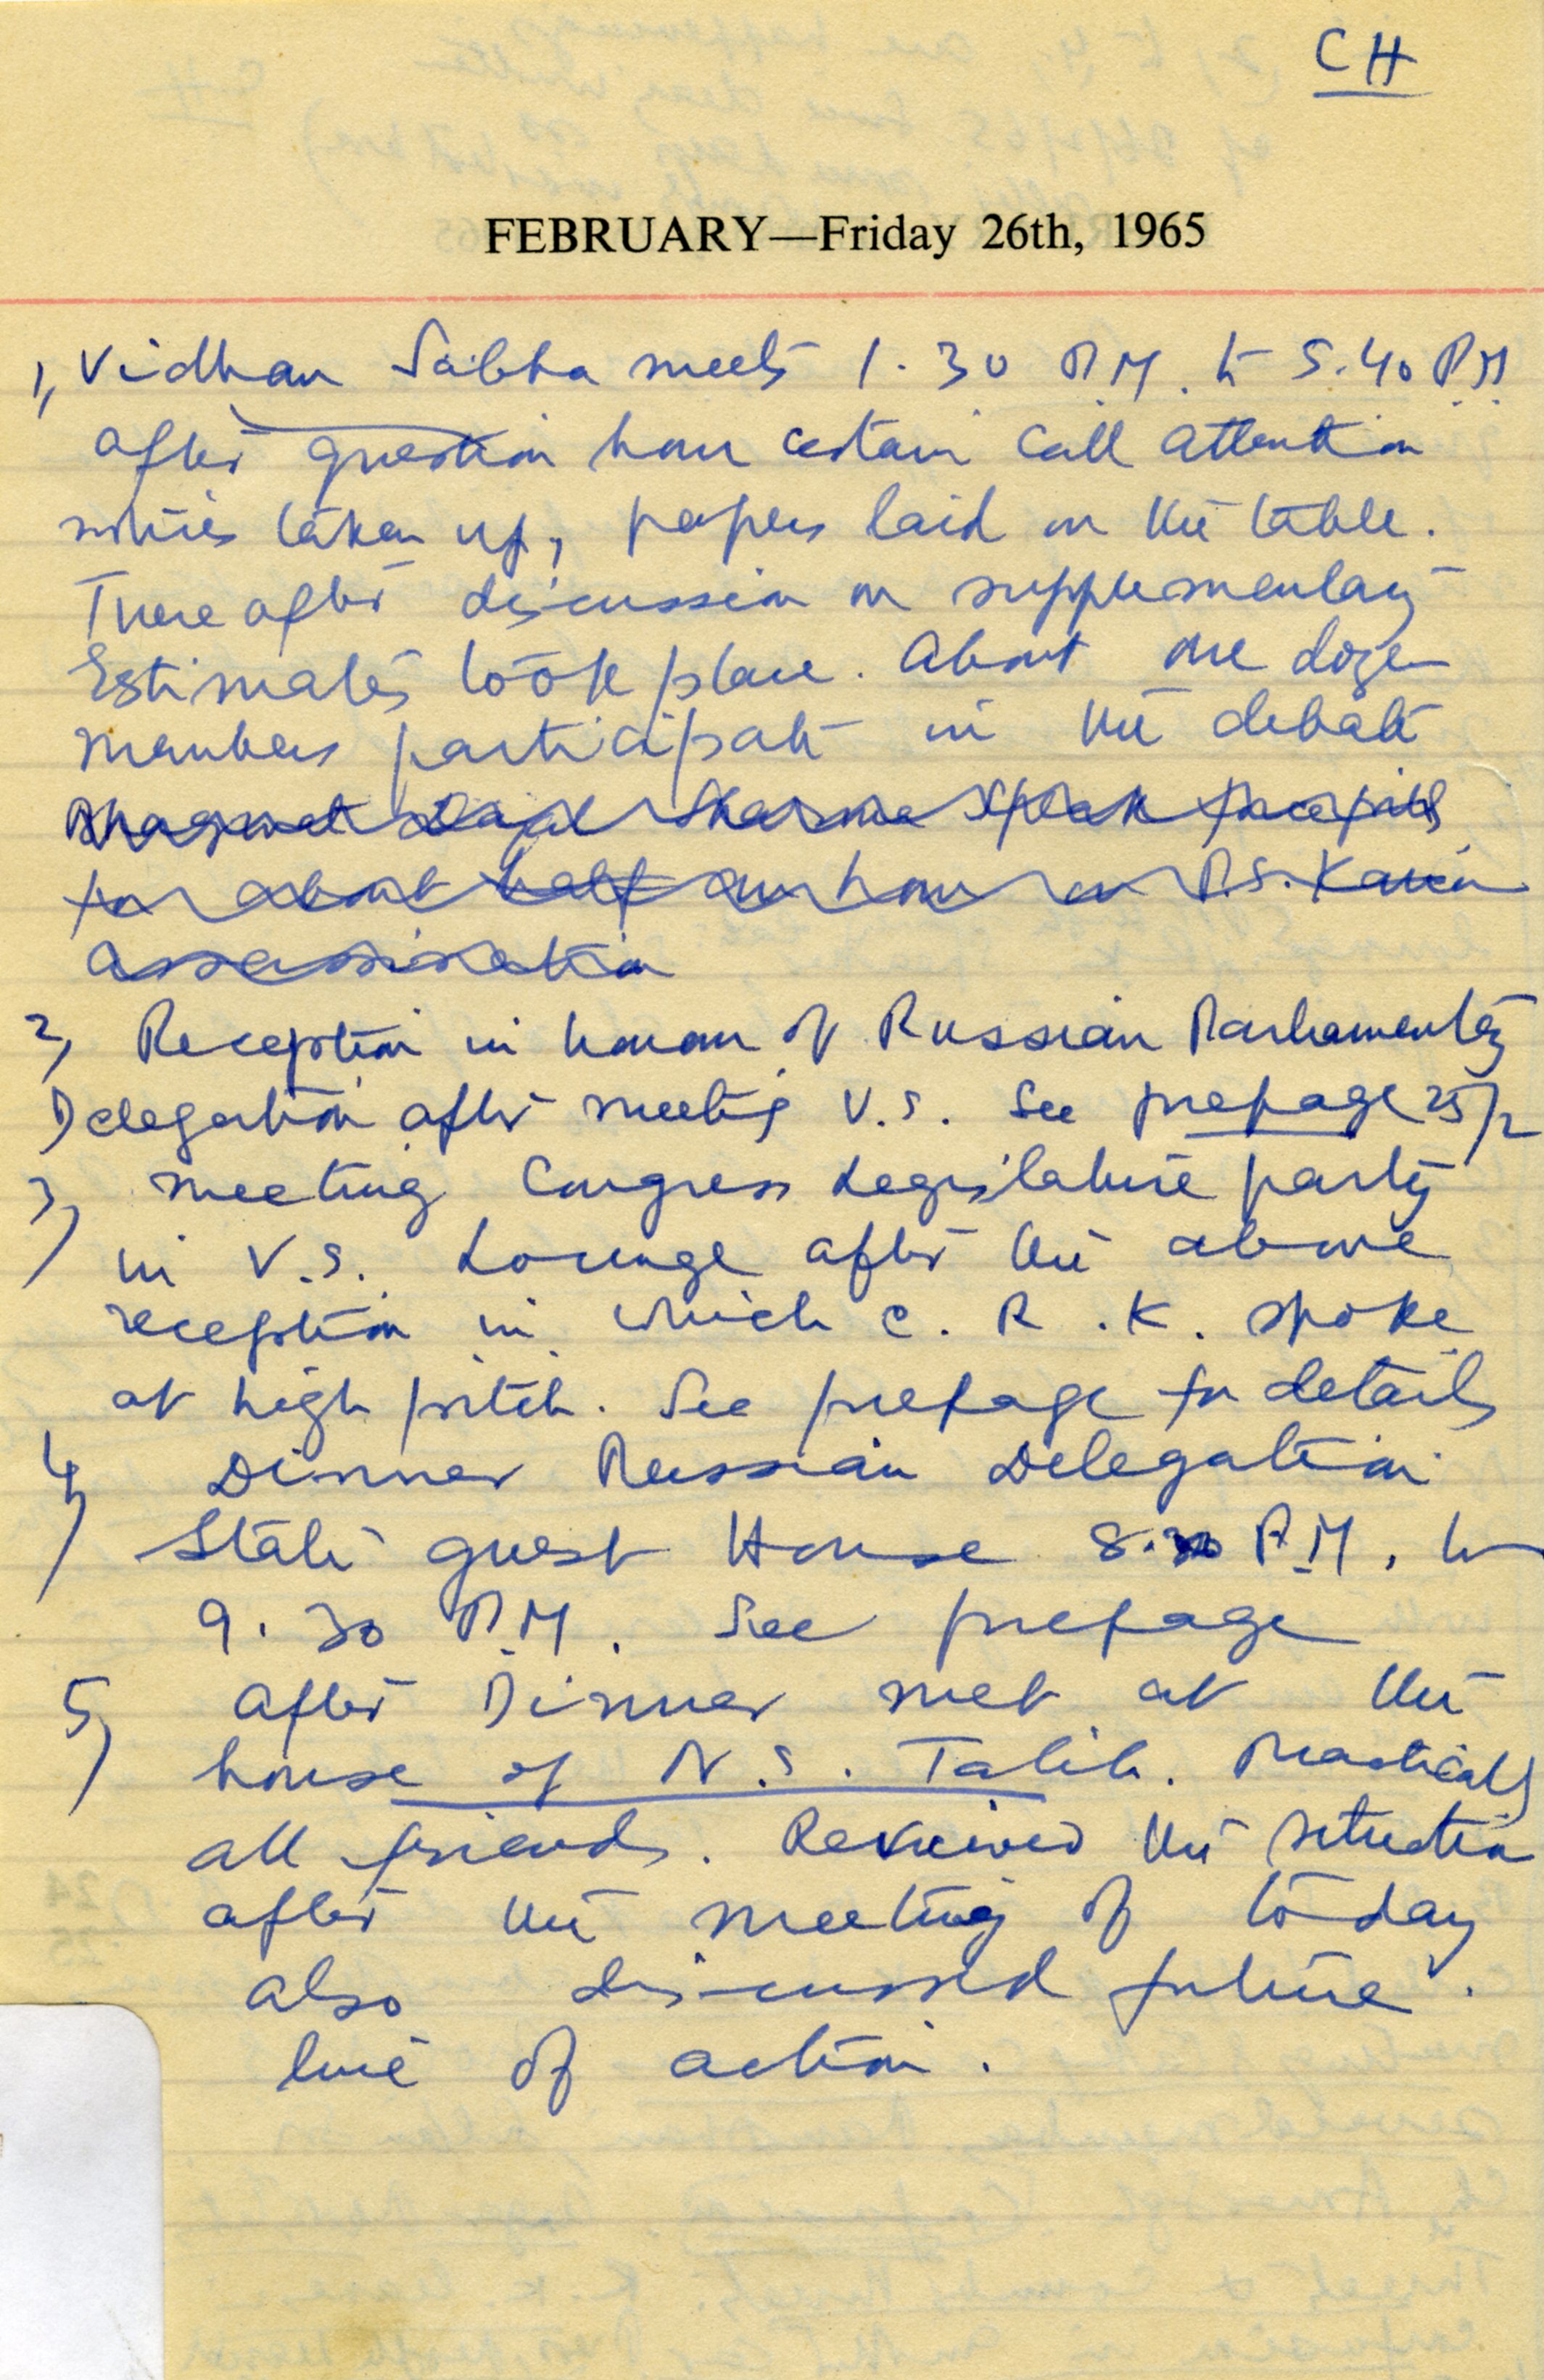 CH
FEBRUARY—Friday 26th, 1965
1, Vidhan Sabha meets 1.30 P.M. to 5.40 P.M.
after question hour certain call attention
notices taken up, papers laid on the table.
Thereafter discussion on supplementary
Estimates took place. About one dozen
members participate in the debate
Bhagwat Dayal Sharma speak forcefully
for about half an hour on P.S. Kairon
assassination
2, Reception in honour of Russian Parliamentary
Delegation after meeting V.S. See prepage 25/2
3, meeting Congress Legislature party
in V.S. Lounge after the above
reception in which C.R.K. spoke
at high pitch. See prepage for details
4, Dinner Russian Delegation
State guest House 8.30 P.M. to
9.30 P.M. See prepage
5, after Dinner met at the
house of N.S. Talib. Practically
all friends. Reviewed the situation
after the meeting of today
also discussed future
line of action.